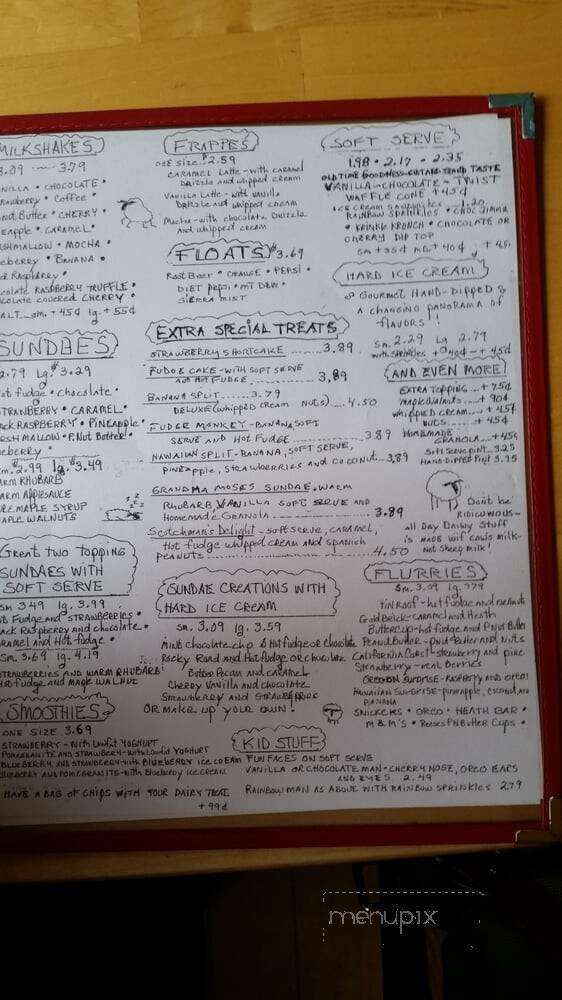 MILKSHAKES
3.09 3.79
VANILLA • CHOCOLATE •
Strawberry • Coffee
Peanut Butter • CHERRY •
Pineapple • CARAMEL •
MARSHMALLOW • MOCHA •
Blueberry • BANANA •
Black Raspberry •
Chocolate RASPBERRY TRUFFLE •
Chocolate covered CHERRY •
MALT... sm. + 45¢ lg. + 55¢
SUNDAES
2.79 Lg. 3.29
Hot fudge • Chocolate •
STRAWBERRY • CARAMEL •
BLACK RASPBERRY • PINEAPPLE •
MARSHMALLOW • P.Nut Butter •
Blueberry
Sm. 2.99 lg. 3.49
WARM RHUBARB
WARM APPLESAUCE
PURE MAPLE SYRUP
MAPLE WALNUTS
Great two topping
SUNDAES WITH
SOFT SERVE
Sm 3.49 lg. 3.99
Hot Fudge and STRAWBERRIES •
Black Raspberry and chocolate •
Caramel and Hot fudge •
Sm. 3.69 lg. 4.19
STRAWBERRIES AND WARM RHUBARB
Hot fudge and MAPLE WALNUT
SMOOTHIES
ONE SIZE 3.69
STRAWBERRY - With Lowfat YOGHURT
POMEGRANITE AND STRAWBERRY - with Lowfat YOGHURT
BLUEBERRY AND STRAWBERRY - with BLUEBERRY ICE CREAM
BLUEBERRY AND POMEGRANITE - with Blueberry ICE CREAM
HAVE A BAG OF CHIPS WITH YOUR DAIRY TREAT
+ 99¢
FRAPPES
ONE SIZE $2.89
CARAMEL Latte - with caramel
Drizzle and whipped cream
Vanilla Latte - with vanilla
Drizzle and whipped cream
Mocha - with chocolate Drizzle
and whipped cream
FLOATS $3.69
Root Beer • ORANGE • PEPSI •
DIET Pepsi • MT DEW •
SIERRA MIST
EXTRA SPECIAL TREATS
STRAWBERRY SHORTCAKE ........ 3.89
FUDGE CAKE - WITH SOFT SERVE
AND HOT FUDGE ........ 3.89
BANANA SPLIT ........ 3.79
DELUXE (whipped cream • NUTS) .... 4.50
FUDGE MONKEY - BANANA, SOFT
SERVE AND Hot FUDGE ........ 3.89
HAWAIIAN SPLIT - BANANA, SOFT SERVE,
PINEAPPLE, STRAWBERRIES AND COCONUT .. 3.89
GRANDMA MOSES SUNDAE, WARM
RHUBARB, VANILLA SOFT SERVE AND
Homemade GRANOLA ........ 3.89
Scotchman's Delight - SOFT SERVE, CARAMEL,
Hot fudge whipped cream and spanish
peanuts ........ 4.50
SUNDAE CREATIONS WITH
HARD ICE CREAM
Sm. 3.09 lg. 3.59
MINT chocolate chip & Hot fudge or chocolate
Rocky Road and Hot fudge or chocolate
Butter Pecan and caramel
Cherry Vanilla and chocolate
Strawberry and STRAWBERRIES
OR MAKE UP YOUR OWN!
KID STUFF
FUN FACES ON SOFT SERVE
VANILLA OR CHOCOLATE MAN - CHERRY NOSE, OREO EARS
AND EYES 2.49
RAINBOW MAN AS ABOVE WITH RAINBOW SPRINKLES 2.79
SOFT SERVE
1.98 • 2.17 • 2.35
OLD TIME GOODNESS - CUSTARD STAND TASTE
VANILLA - CHOCOLATE - TWIST
WAFFLE CONE + 45¢
ICE CREAM SANDWICHES 1.20
RAINBOW SPRINKLES • CHOC JIMMIE
• KRINKLE KRUNCH • CHOCOLATE OR
CHERRY DIP TOP
sm + 35¢ med + 40¢ + 45¢
HARD ICE CREAM
Gourmet HAND-DIPPED
a changing panorama of
flavors!
Sm. 2.29 Lg 2.79
with sprinkles + 40¢ - + 45¢
AND EVEN MORE
EXTRA TOPPING ... + 75¢
maple walnuts .... + 90¢
whipped cream .... + 45¢
NUTS ...... + 45¢
HOMEMADE
GRANOLA .. + 45¢
Soft Serve pint 3.25
Hand-Dipped Pint 3.75
Dont be
RIDICULOUS -
all Day Dairy Stuff
is MADE wif cows milk -
Not Sheep milk!
FLURRIES
Sm. 3.09 lg. 3.79
TIN ROOF - hot fudge and peanuts
Gold Brick - CARAMEL and Heath
Buttercup - hot fudge and P.Nut Butter
Peanut Butter - P.Nut Butter and NUTS
California Coast - strawberry and pine
Strawberry - real berries
OREGON SUNRISE - RASPBERRY AND OREO
HAWAIIAN SUNRISE - pineapple, coconut and
BANANA
SNICKERS • OREO • HEATH BAR •
M & M'S • Reeses P.Nut Butter Cups •
menupix